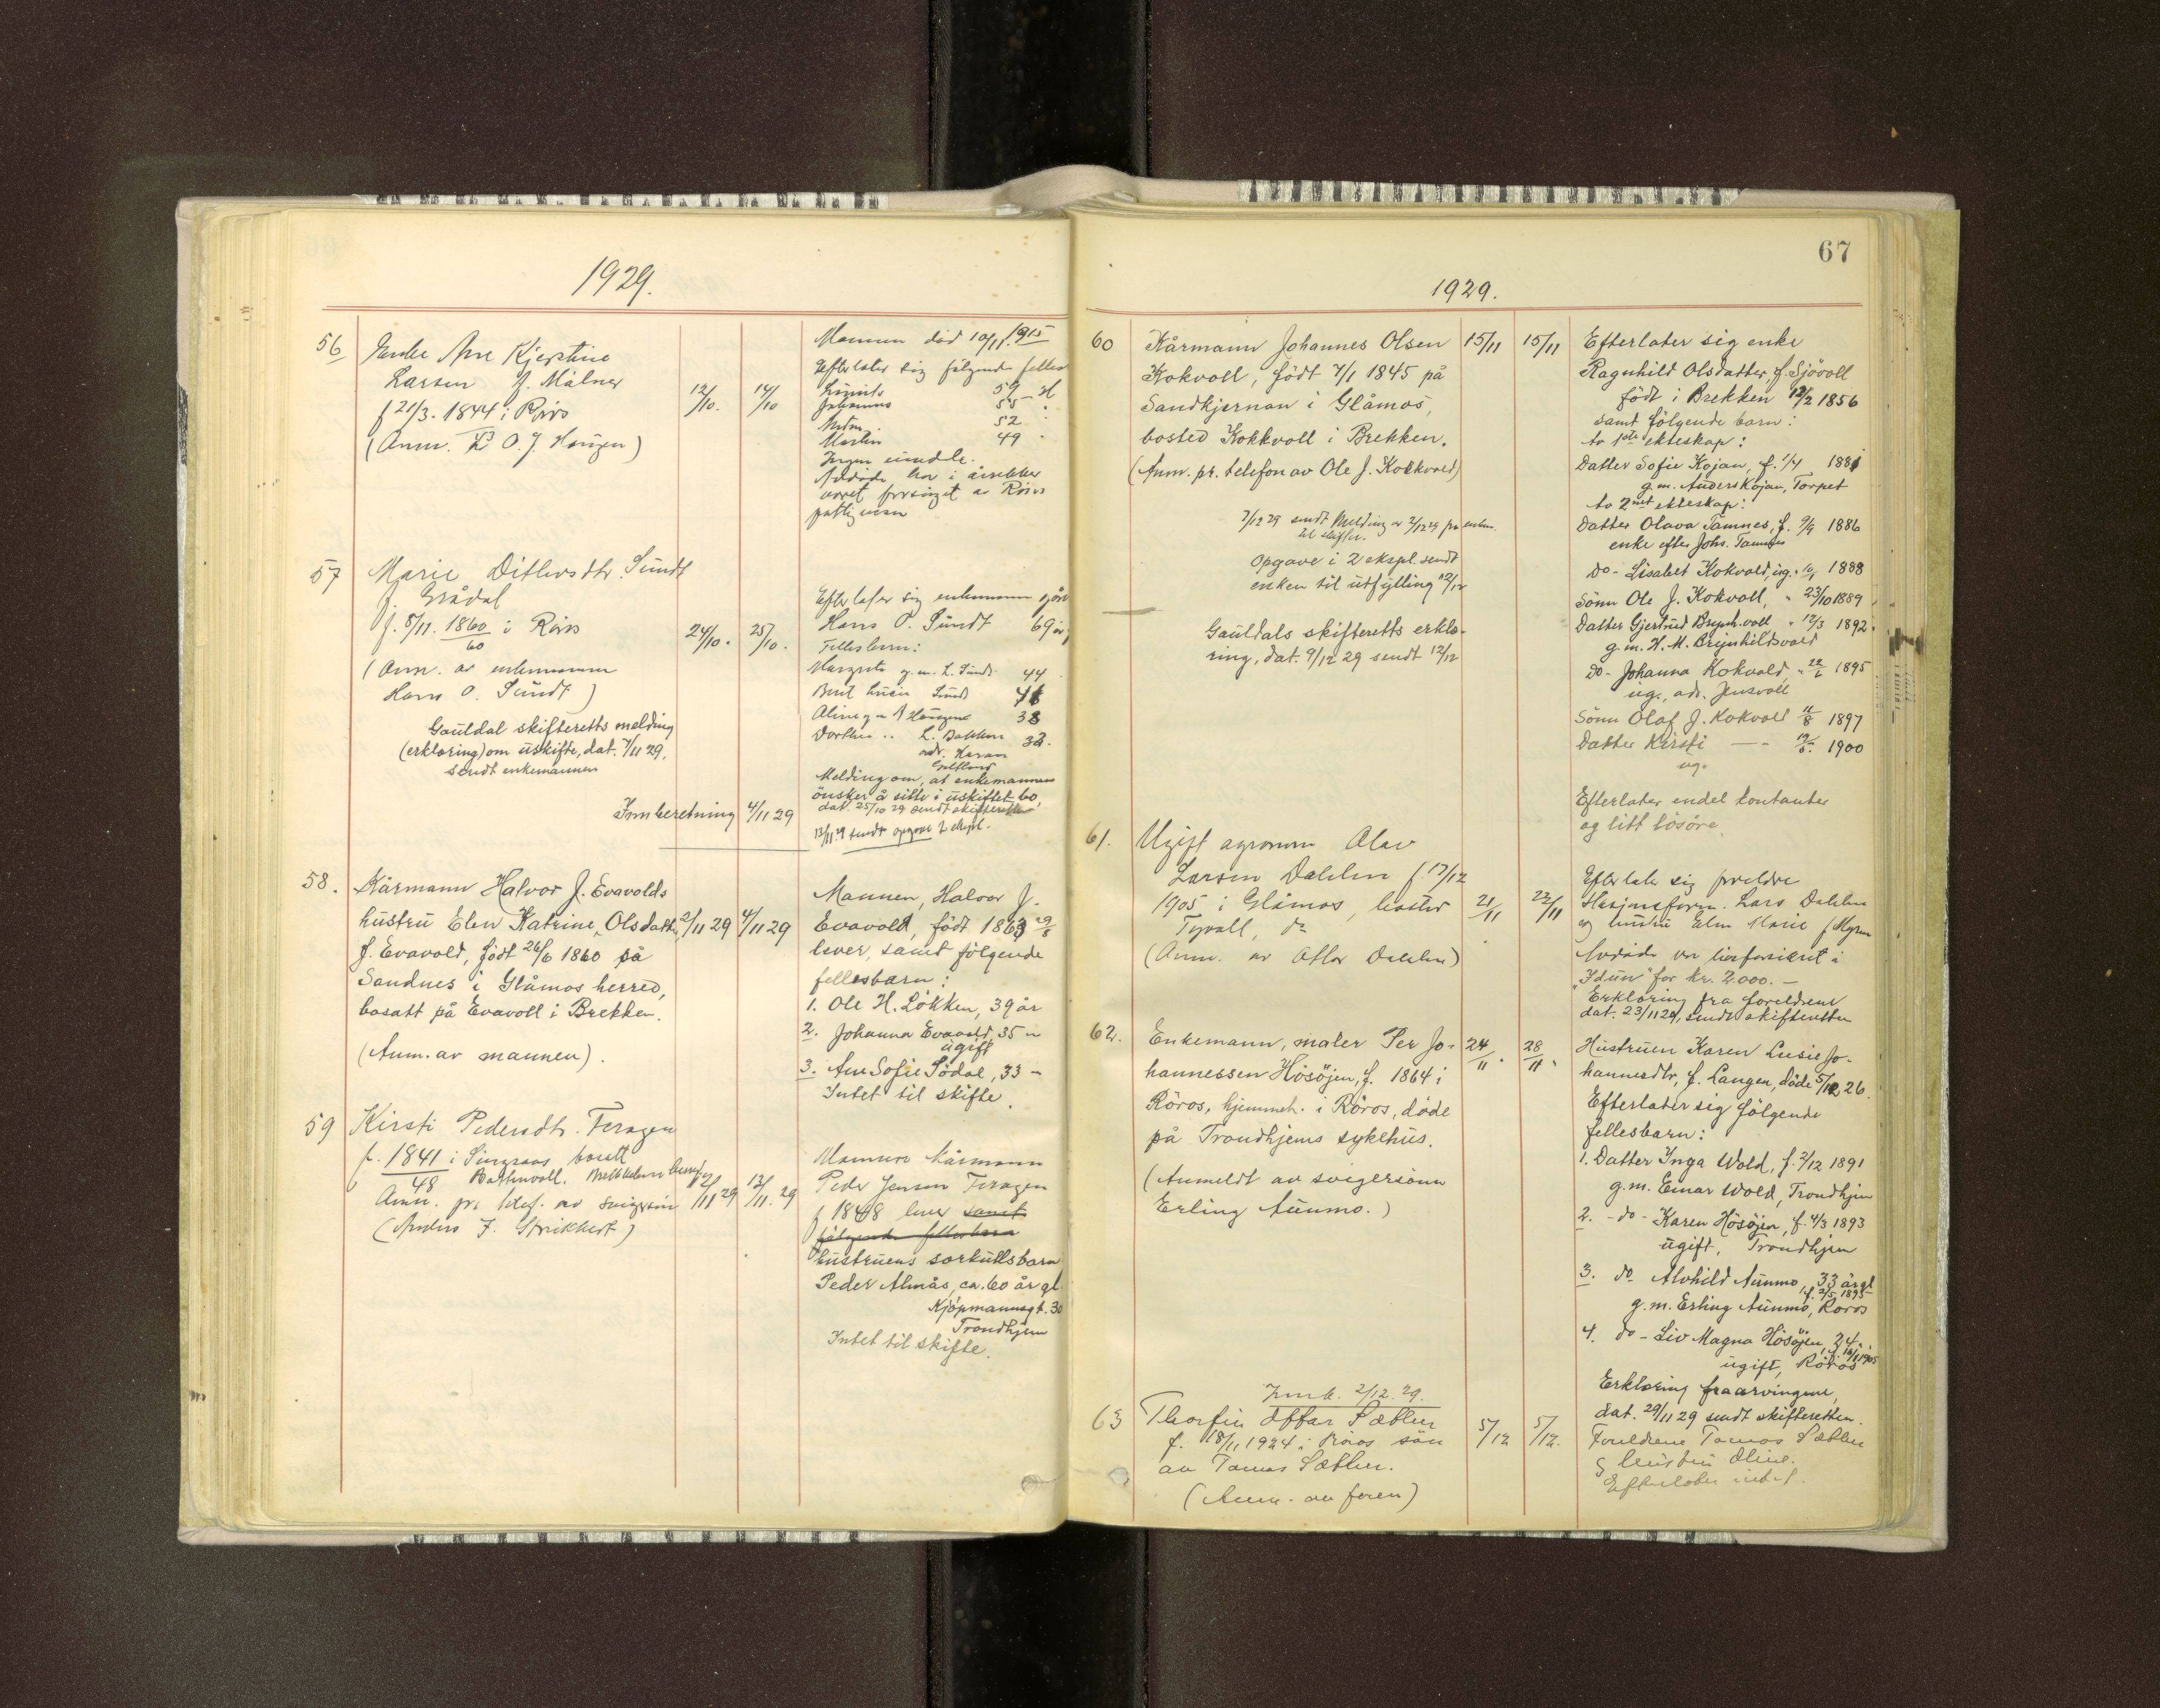 1929.
56
Enke Ane Kjerstine
Larsen f. Målner
f 21/3. 1844 i Röros
(Anm. O. J. Haugen)
12/10.
14/10
Mannen död 10/11. 1915
Efterlater sig fölgende felles
59
Johannes 55
52
Martin 49
Ingen umdle.
Avdöde har i årrekker
været forsörget av Röros
fattigvesen
57
Marie Ditlevsdtr. Sundt
f. Grådal
f. 8/11. 1860 i Röros
60
(Anm. av enkemannen
Hans O. Sundt)
24/10.
25/10.
Efterlater sig enkemann
Hans O. Sundt 69 år,
Fellesbarn:
Margrete g.m. L. Sundt 44
Berit Lucie Sundt 41
Aline g.m. Haugen 38
Dorthea L. Bakken 32.
adr. Haran
Melding om, at enkemannen
önsker å sitte i uskiftet bo,
dat. 25/10 29 sendt skifteretten
13/11.29 sendt opgave 2 ekspl.
Gauldal skifteretts melding
(erklæring) om uskifte, dat. 7/11 29,
sendt enkemannen
Innberetning 4/11 29
58.
Kårmann Halvor J. Evavolds
hustru Elen Katrine Olsdatter
f. Evavold, födt 26/6 1860 på
Sandnes i Glåmos herred,
bosatt på Evavoll i Brekken.
(Anm. av mannen).
2/11 29
4/11 29
Mannen, Halvor J.
Evavold, födt 1863 29/8
lever, samt fölgende
fellesbarn:
1. Ole H. Lökken, 39 år
2. Johanna Evavold, 35 "
ugift
3. Ane Sofie Södal, 33 –
Intet til skifte.
59
Kirsti Pedersdtr. Feragen
f. 1841 i Singsaas bosatt
48
Anm. pr. telef. av svigersön
(Anders J. Strickert)
2/11 29
13/11. 29
Mannen kårmann
Peder Jensen Feragen
f 1848 lever samt
fölgende fellesbarn
hustruens særkullsbarn
Peder Almås, ca. 60 år gl.
Kjöpmannsgt. 30
Trondhjem
Intet til skifte.
67
1929.
60
Kårmann Johannes Olsen
Kokvoll, födt 7/1 1845 på
Sandkjernan i Glåmos,
bosted Kokkvoll i Brekken.
(Anm. pr. telefon av Ole J. Kokkvold)
15/11
15/11
7/12 29 sendt Melding av 2/12 29 fra enken
til skifter.
Opgave i 2 ekspl. sendt
enken til utfylling 12/12
Gauldals skifteretts erklæ-
ring, dat. 9/12 29 sendt 12/12
Efterlater sig enke
Ragnhild Olsdatter, f. Sjövoll
födt i Brekken 12/2 1856
samt fölgende barn:
av 1ste ekteskap:
Datter Sofie Kojan, f. 1/4 1881
g.m. Anders Kojan, Torpet
av 2net ekteskap:
Datter Olava Tamnes, f. 9/9 1886
enke efter Johs. Tamnes
Do – Lisabet Kokvold, ug. 1888
Sönn Ole J. Kokvoll, " 23/10 1889
Datter Gjertrud Brynh.voll " 12/3 1892.
g.m. H. M. Brynhildsvold
Do – Johanna Kokvold, " 1895
ug., adr. Jensvoll
Sönn Olaf J. Kokvold 11/8 1897
Datter Kirsti –"– 1900
ug.
Efterlater endel kontanter
og litt lösöre.
61.
Ugift agronom Olav
Larsen Dahlen f. 17/12
1905 i Glåmos, bosted
Tyvoll, do
(Anm. av Dahlen)
21/11
22/11
Efterlater sig foreldre
Lars Dahlen
og hustru Elen Marie f Myran
Avdöde var livsforsikret i
"Idun" for kr. 2.000.–
Erklæring fra foreldrene
dat. 23/11 29, sendt skifteretten
62.
Enkemann, maler Per Jo-
hannessen Hösöjen, f. 1864 i
Röros, hjemmeh. i Röros, döde
på Trondhjems sykehus.
(Anmeldt av svigersönn
Erling Aunmo.)
24/11.
28/11.
Hustruen Karen Lusie Jo-
hannesdtr, f. Langen, döde 5/12 26.
Efterlater sig fölgende
fellesbarn:
1. Datter Inga Wold, f. 2/12 1891
g.m. Einar Wold, Trondhjem
2. – do – Karen Hösöjen, f. 4/3 1893
ugift, Trondhjem
3. do Alvhild Aunmo, 33 år gl
f. 2/5 1895
g.m. Erling Aunmo, Röros
4. do – Liv Magna Hösöjen, 24.
ugift, Röros
Erklæring fra arvingene,
dat. 29/11 29 sendt skifteretten.
Innb. 2/12. 29.
63
Thorfin Sæther
f. 18/11 1924 i Röros sön
av Tomas Sæther.
(Anm. av faren)
5/12
5/12.
Foreldrene Tomas Sæther
og hustru Oline.
Efterlater intet.